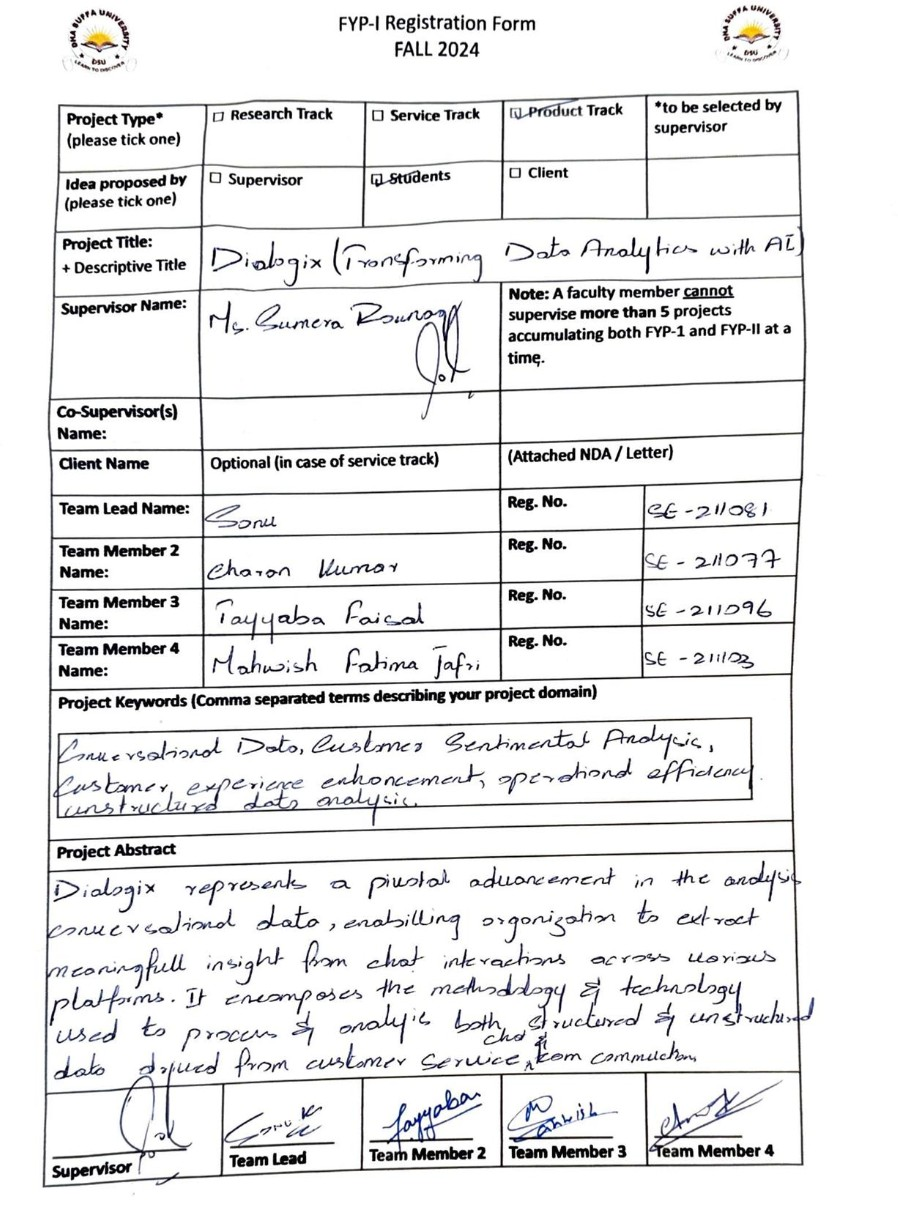 DHA SUFFA UNIVERSITY
DSU
LEARN TO DISCOVER
FYP-I Registration Form
FALL 2024
DHA SUFFA UNIVERSITY
DSU
LEARN TO DISCOVER
Project Type* (please tick one) ☐ Research Track ☐ Service Track ☑ Product Track *to be selected by supervisor
Idea proposed by (please tick one) ☐ Supervisor ☑ Students ☐ Client
Project Title: + Descriptive Title Dialogix (Transforming Data Analytics with AI)
Supervisor Name: Ms. Sumera Rounaq
Note: A faculty member cannot
supervise more than 5 projects
accumulating both FYP-1 and FYP-II at a
time.
Co-Supervisor(s) Name:
Client Name Optional (in case of service track) (Attached NDA / Letter)
Team Lead Name: Sonu Reg. No. SE - 211081
Team Member 2 Name: Charan Kumar Reg. No. SE - 211077
Team Member 3 Name: Tayyaba Faisal Reg. No. SE - 211096
Team Member 4 Name: Mahwish Fatima Jafri Reg. No. SE - 211103
Project Keywords (Comma separated terms describing your project domain)
Conversational Data, Customer Sentimental Analysis,
Customer experience enhancement, operational efficiency
unstructured data analysis.
Project Abstract
Dialogix represents a pivotal advancement in the analysis
conversational data, enabilling organization to extract
meaningfull insight from chat interactions across various
platforms. It encomposes the methodology & technology
used to process & analyis both structured & unstructured
data from customer service
Sonu K Tayyaba Mahwish
Supervisor Team Lead Team Member 2 Team Member 3 Team Member 4